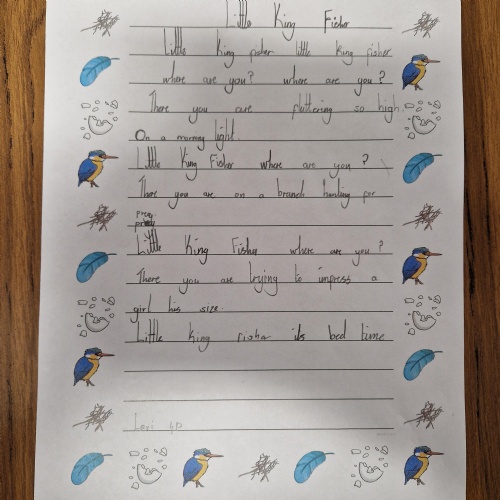 Little King Fisher
Little king fisher little king fisher
where are you? where are you?
There you are fluttering so high
On a morning light.
Little King Fisher where are you?
There you are on a branch hunting for
prey.
Little King Fisher where are you?
There you are trying to impress a
girl his size.
Little King Fisher its bed time
Levi